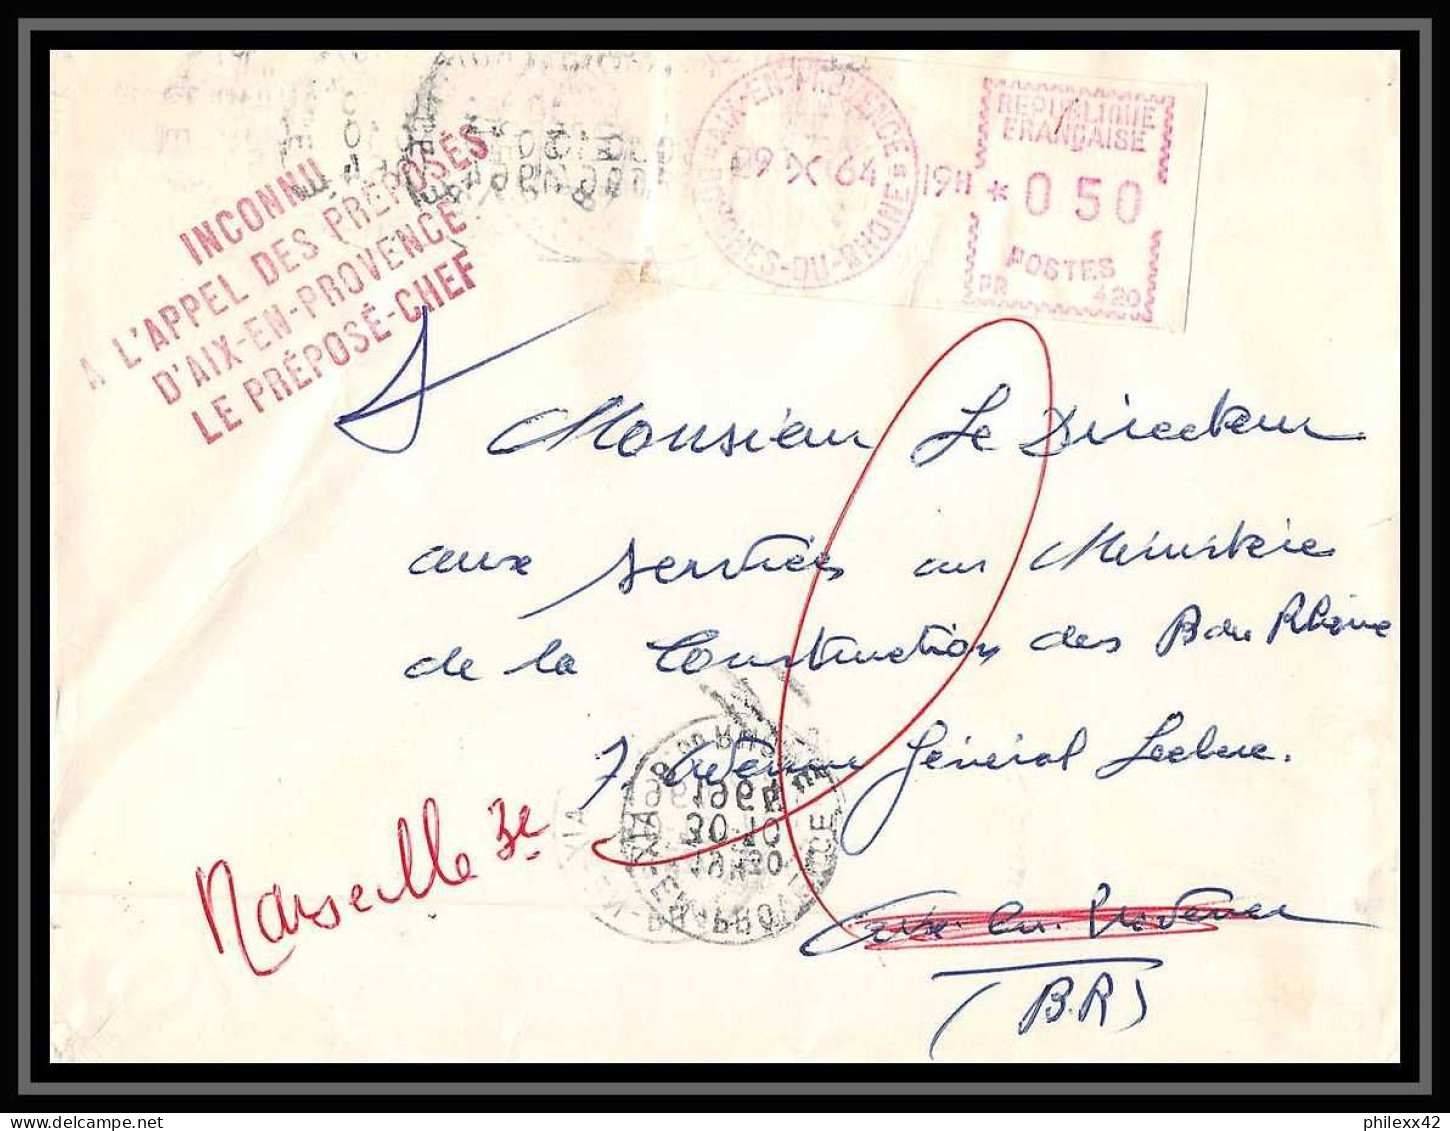 INCONNU
A L'APPEL DES PRÉPOSÉS
D'AIX-EN-PROVENCE
LE PRÉPOSÉ-CHEF
AIX-EN-PROVENCE
BOUCHES-DU-RHÔNE
09 -X 64
19H
REPUBLIQUE
FRANÇAISE
* 0 50
POSTES
PR
420
Monsieur Le Directeur
aux services au Ministère
de la Construction des B du Rhône
7. Avenue Général Leclerc.
Marseille 3e
Aix. en. Provence
(B.R)
philexx42